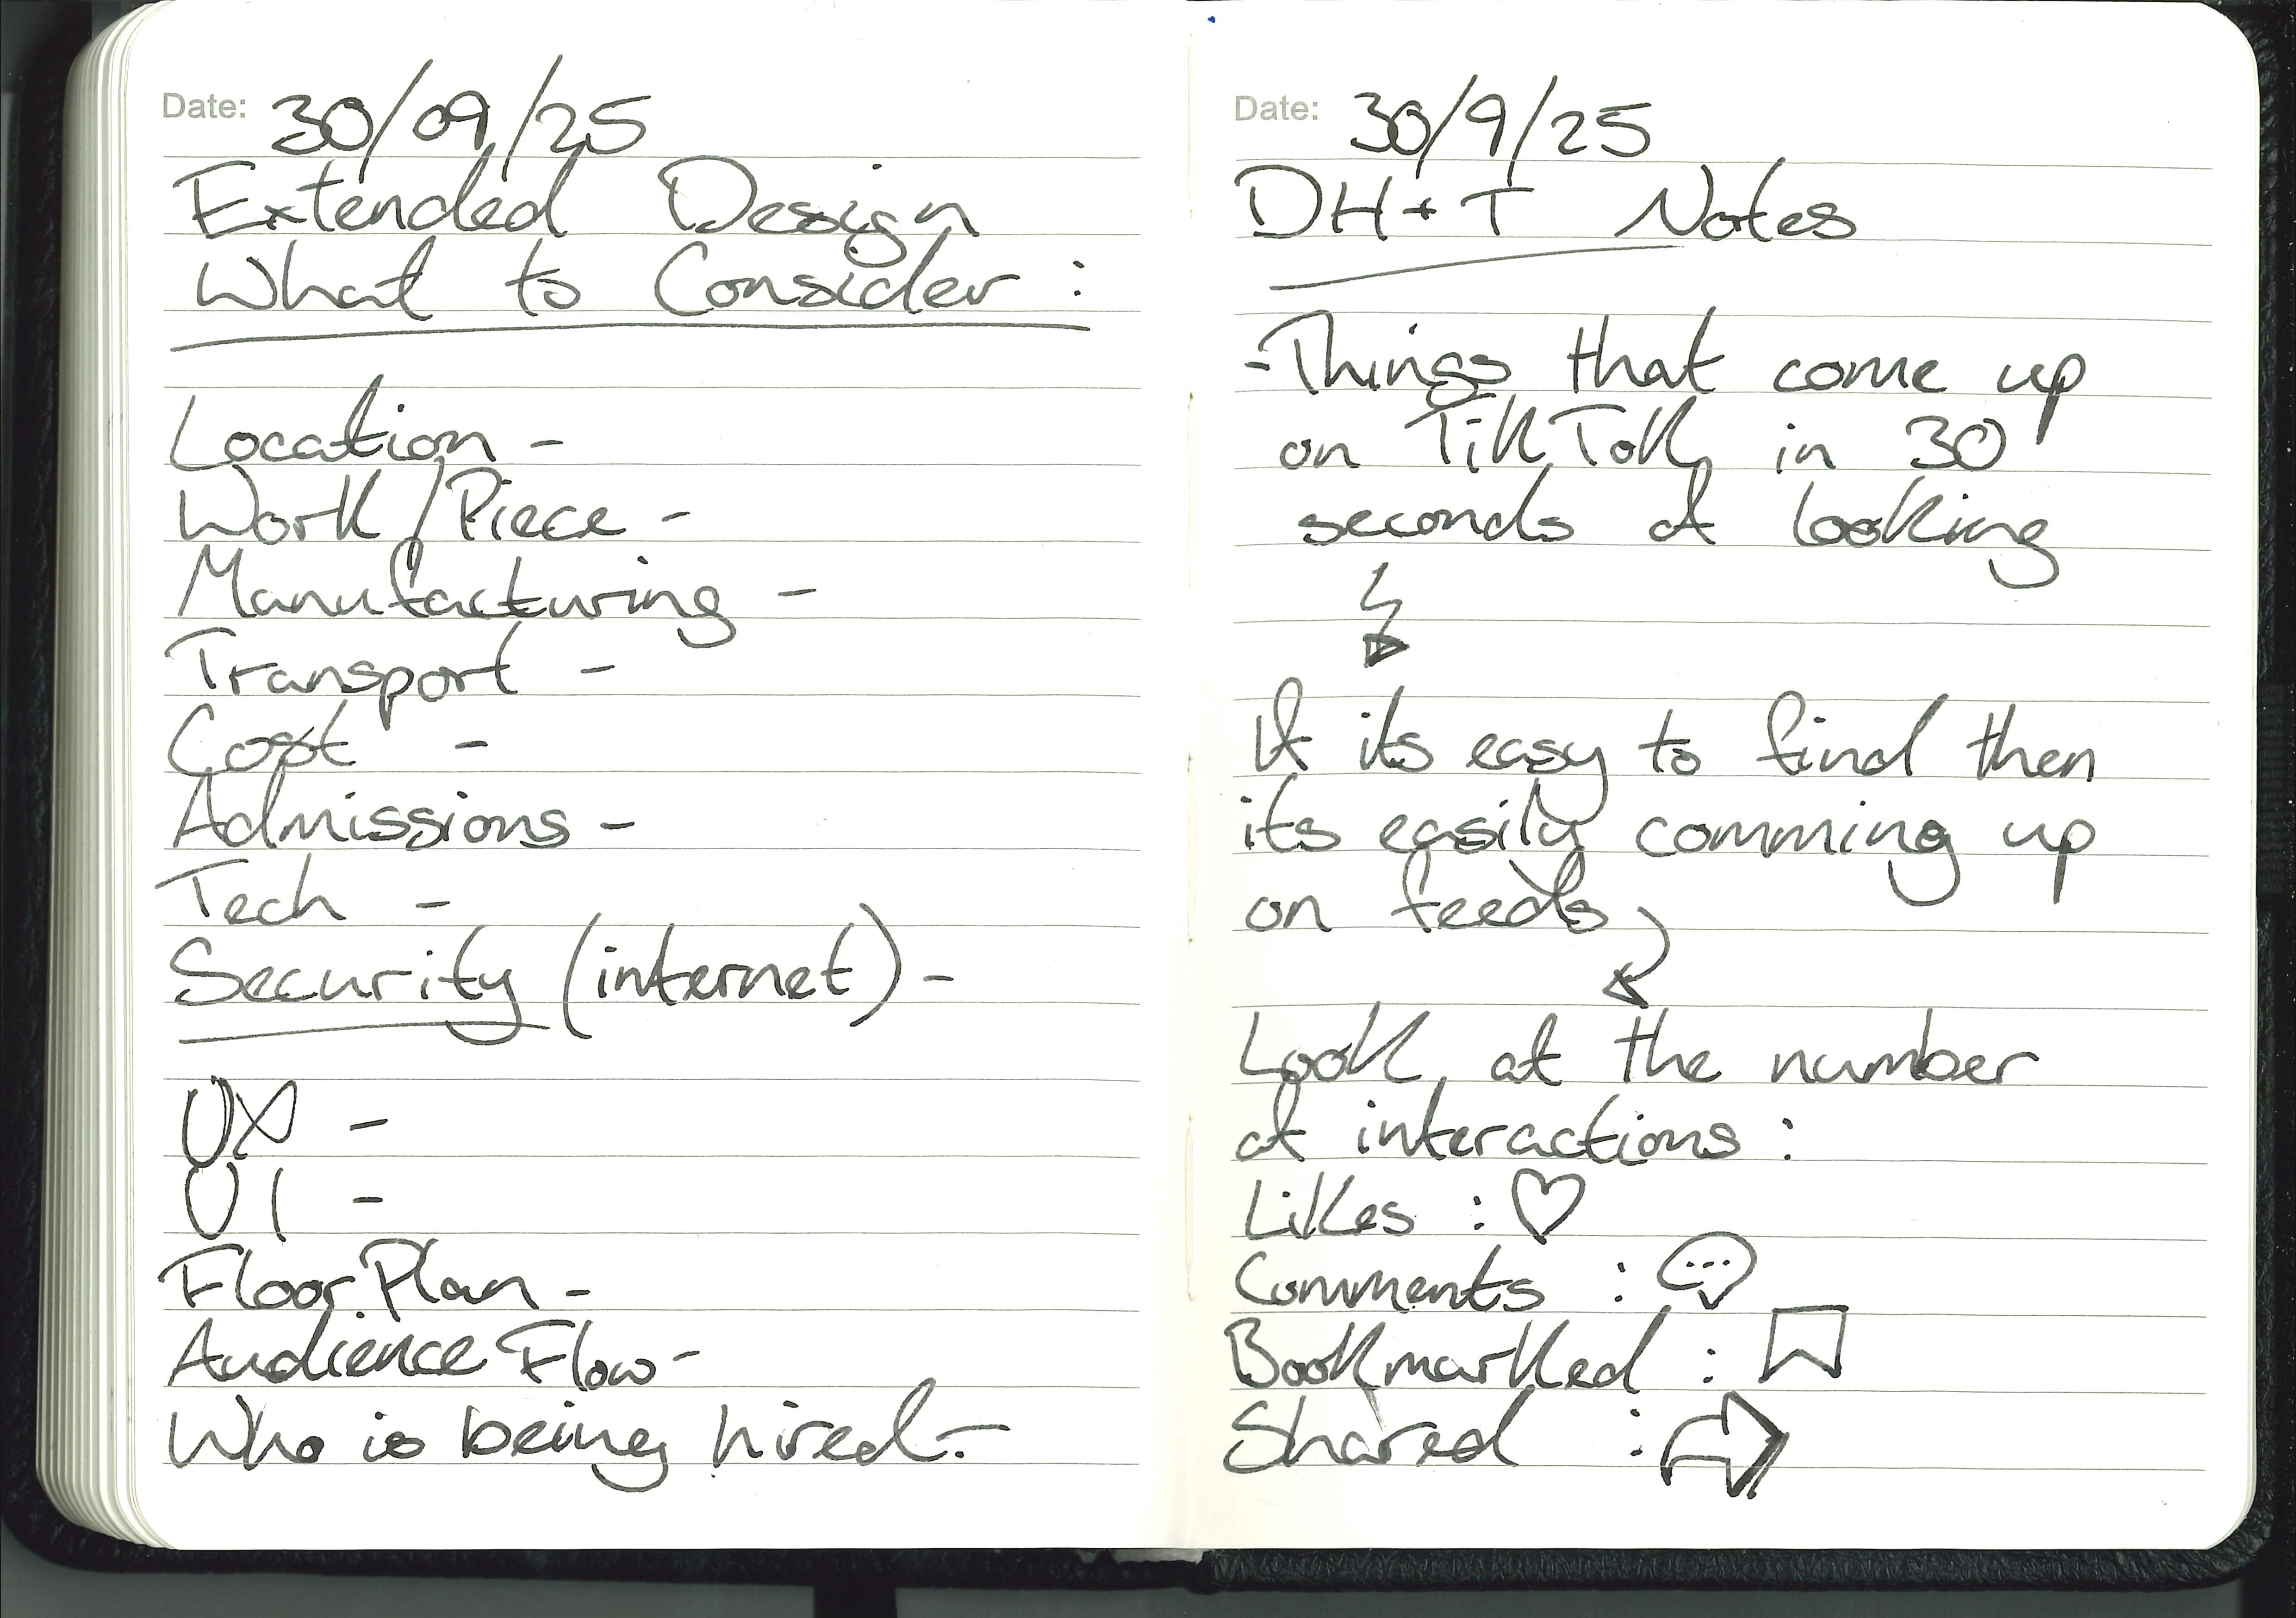 Date: 30/09/25
Extended Design
What to Consider :
Location -
Work/Piece -
Manufacturing -
Transport -
Cost -
Admissions -
Tech -
Security (internet) -
UX -
UI -
Floor Plan -
Audience Flow -
Who is being hired -
Date: 30/9/25
DH+T Notes
- Things that come up
on TikTok in 30
seconds of looking
If its easy to find then
its easily comming up
on feeds
Look at the number
of interactions :
Likes :
Comments :
Bookmarked :
Shared :